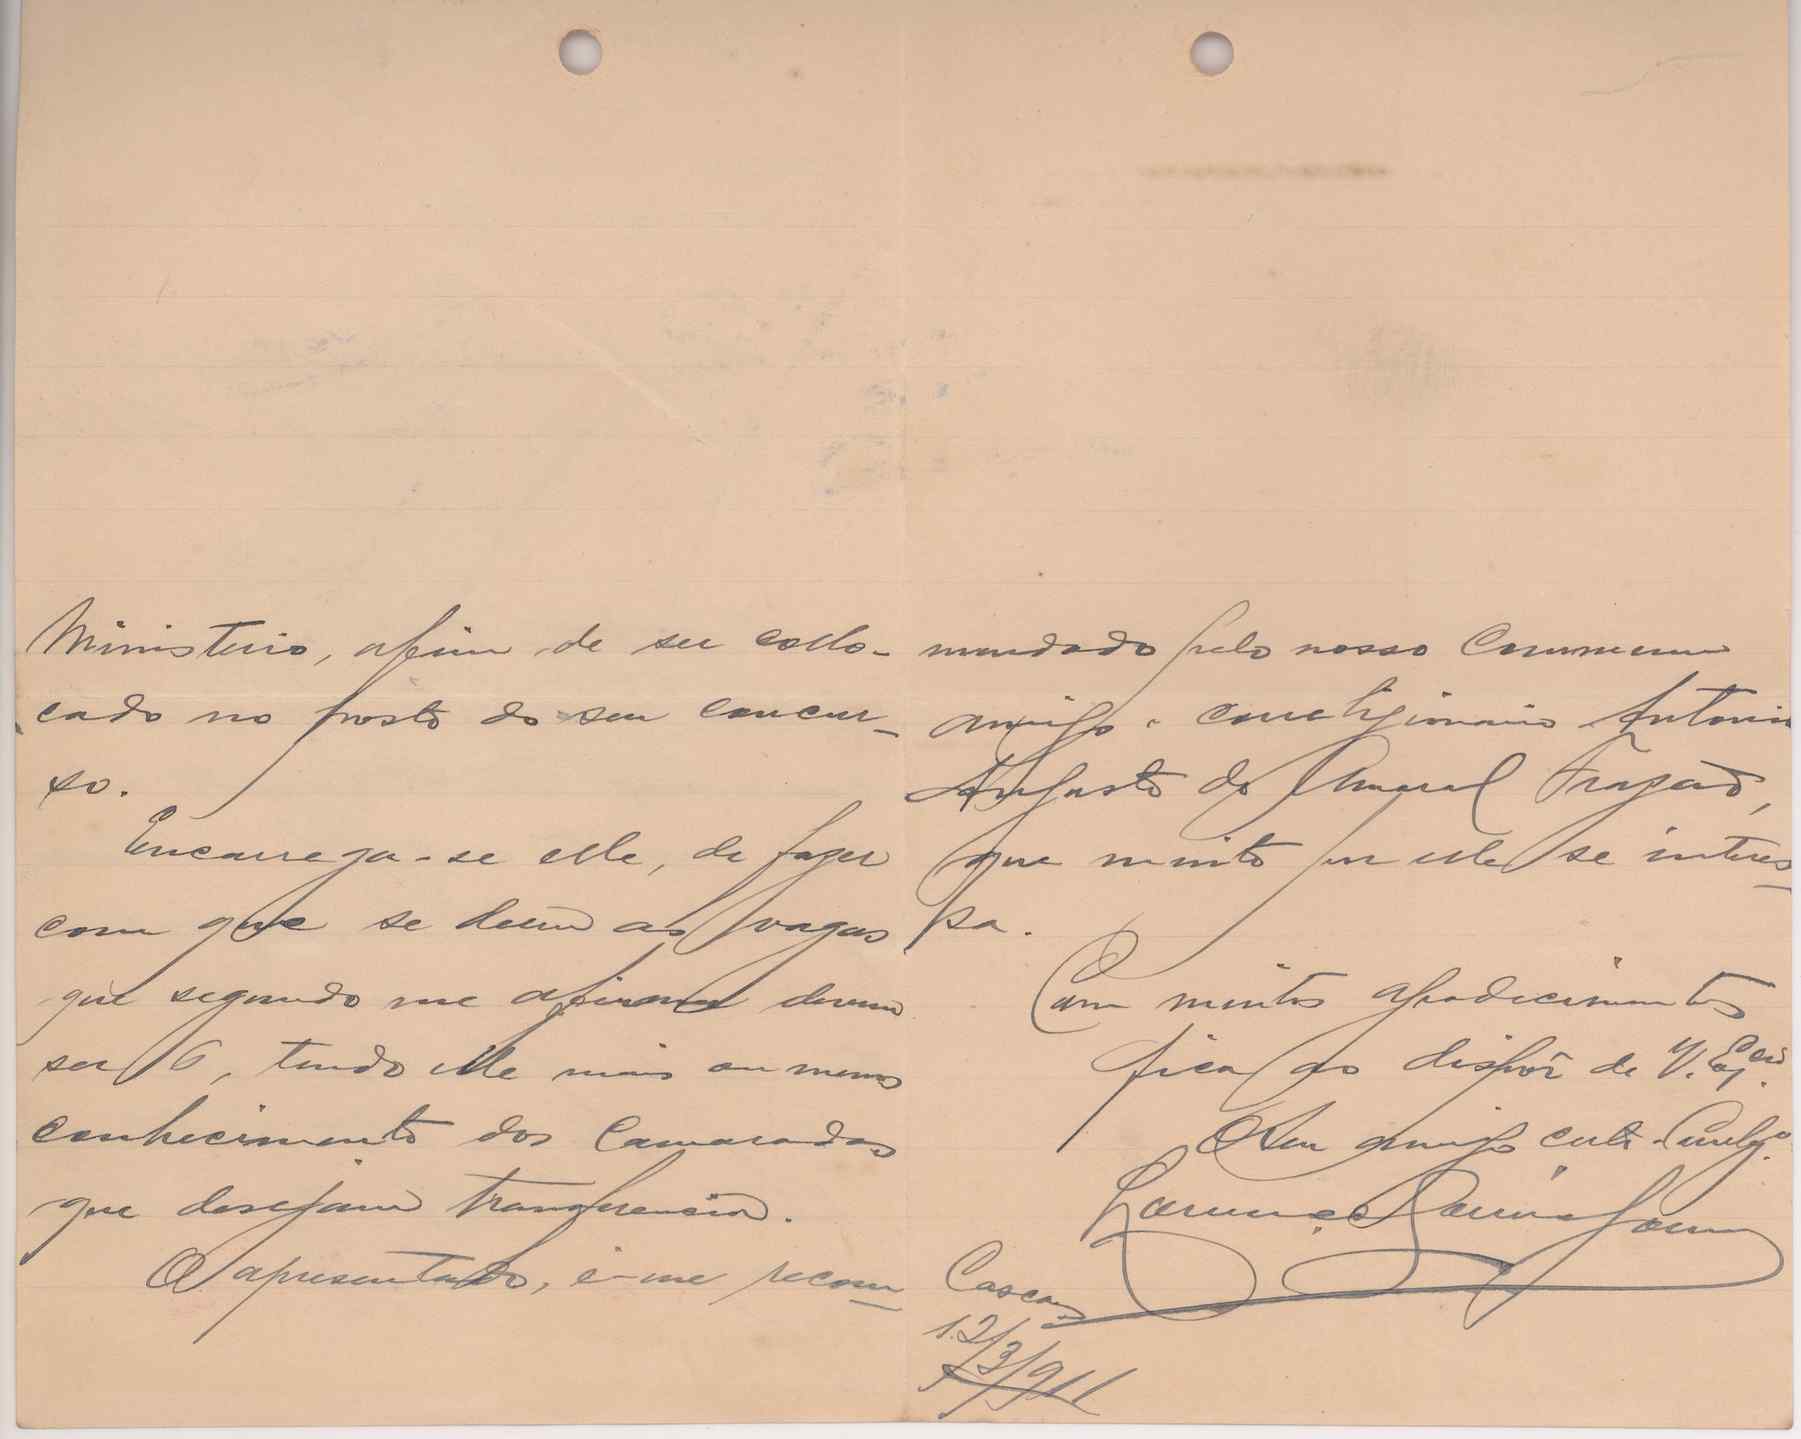 Ministerio, afim de ser collo-
cado no posto do seu concur-
so.
Encarrega-se elle, de fazer
com que se deem as vagas
que segundo me afirma devem
ser 6, tendo elle mais ou menos
conhecimento dos Camaradas
que desejam transferencia.
O apresentado, é-me recom-
mendado pelo nosso Commum
amigo e correligionario Antonio
Augusto do Amaral Frazão,
que muito por elle se interes-
sa.
Com muitos agradecimentos
fica ao dispôr de V. Exª
O seu amigo certo
Cascaes
12/3/911